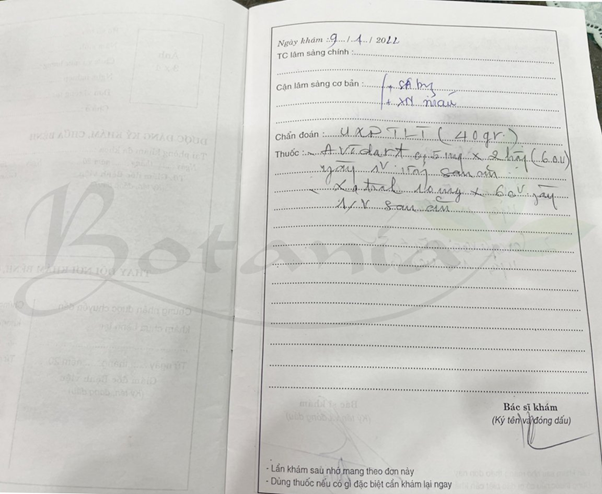 Ngày khám : 9 / 1 / 2022
TC lâm sàng chính :
Cận lâm sàng cơ bản : + SÂ bụng
+ XN máu
Chẩn đoán : UXPTLT ( 40gr. )
Thuốc : - Avodart 0,5mg x 2 hộp ( 60v )
ngày 1v uống sau ăn
- Xatral 10mg x 60v ngày
1v sau ăn
Botania
Bác sĩ khám
(Ký tên và đóng dấu)
- Lần khám sau nhớ mang theo đơn này
- Dùng thuốc nếu có gì đặc biệt cần khám lại ngay